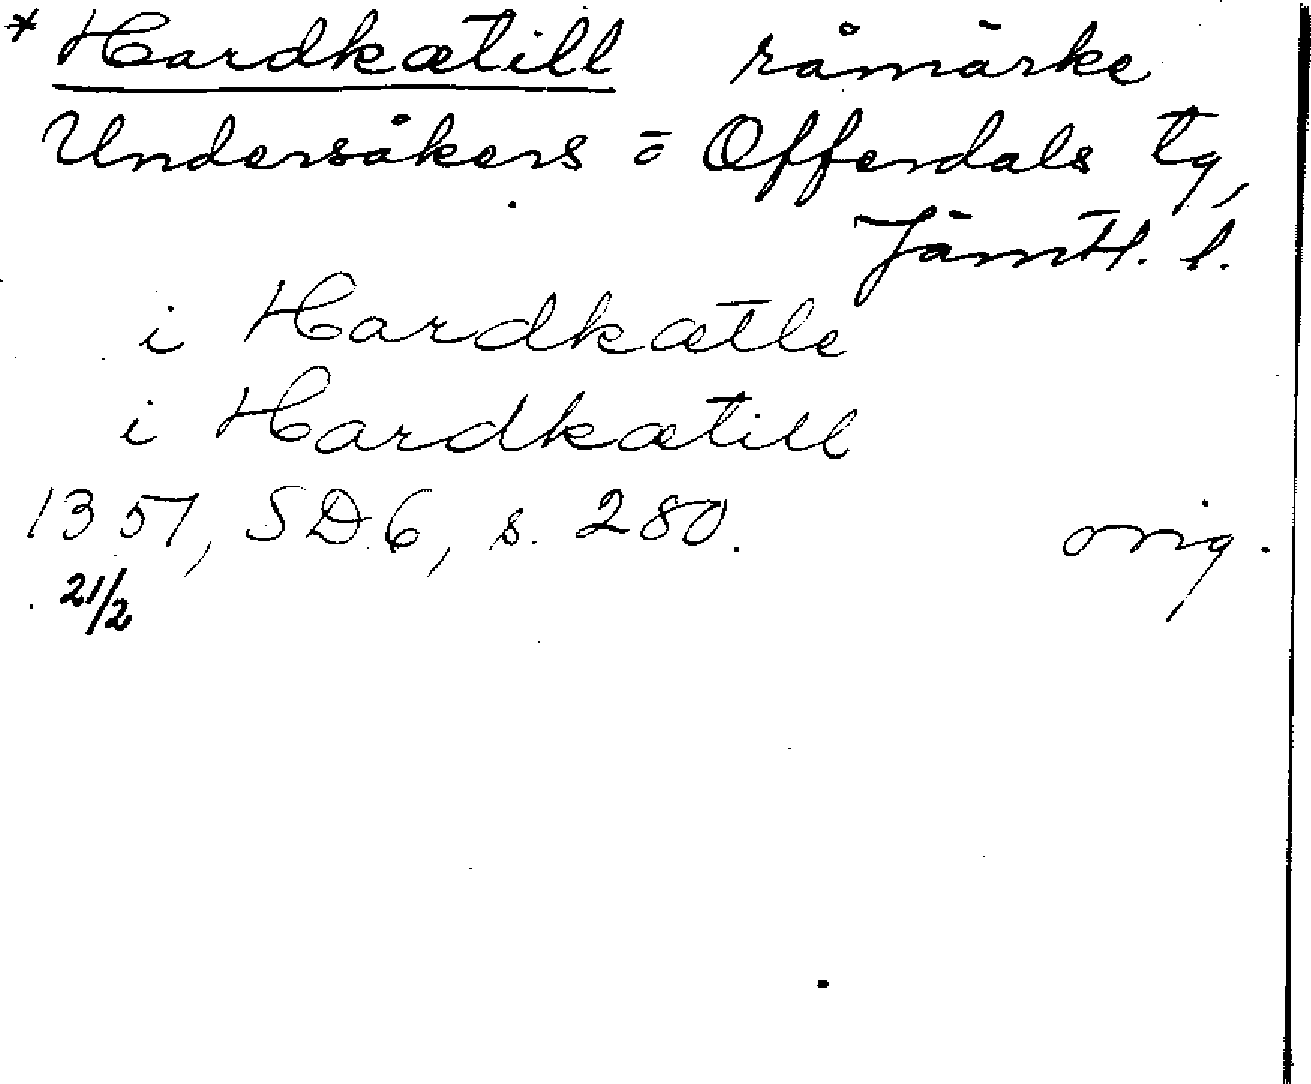 * Hardkætill råmärke
Undersåkers o Offerdals tg,
Jämtl. l.
i Hardkætle
i Hardkætill
1357, SD 6, s. 280. orig.
21/2